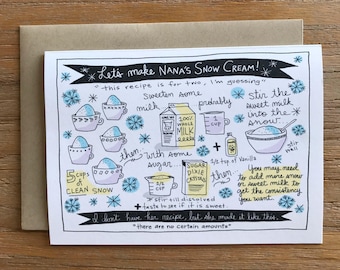 Let's make NANA'S SNOW CREAM!
"this recipe is for two, I'm guessing"
Sweeten some
milk
probably
1
CUP
100%
WHOLE
MILK
Stir the
sweet milk
into the
snow.
stir
well
then
with some
sugar...
1/2 tsp of Vanilla
then
5 cups of
CLEAN SNOW
1/2
CUP
SUGAR
DIXIE
CRYSTALS
stir till dissolved
+ taste to see if it is sweet.
You may need
to add more snow
or sweet milk to
get the consistency
you want.
I don't have her recipe, but she made it like this.
"there are no certain amounts"